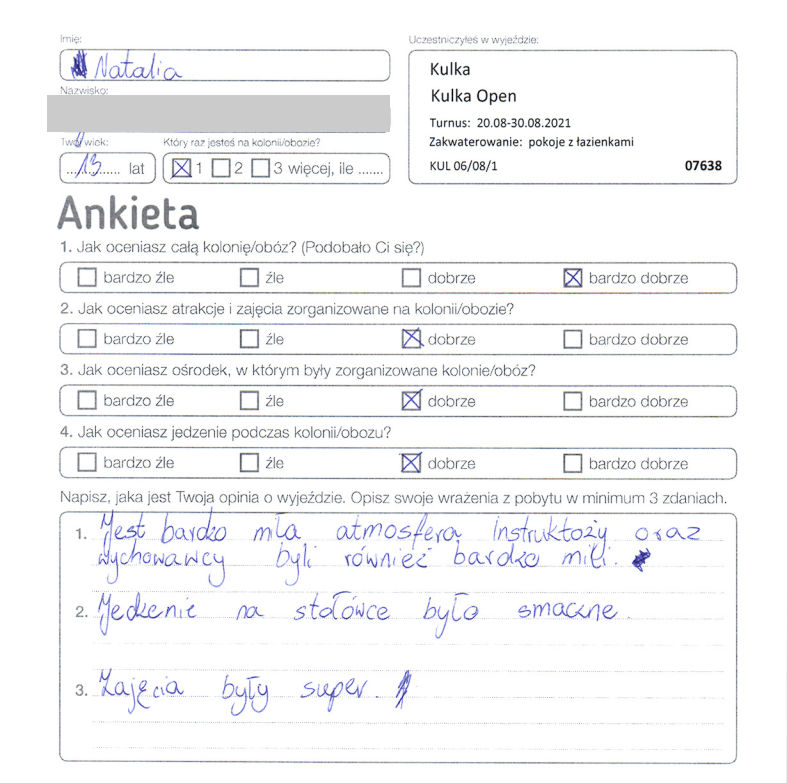 Imię:
Natalia
Nazwisko:
Twój wiek:
Który raz jesteś na kolonii/obozie?
...13...... lat
1 2 3 więcej, ile .......
Uczestniczyłeś w wyjeździe:
Kulka
Kulka Open
Turnus: 20.08-30.08.2021
Zakwaterowanie: pokoje z łazienkami
KUL 06/08/1 07638
Ankieta
1. Jak oceniasz całą kolonię/obóz? (Podobało Ci się?)
bardzo źle źle dobrze bardzo dobrze
2. Jak oceniasz atrakcje i zajęcia zorganizowane na kolonii/obozie?
bardzo źle źle dobrze bardzo dobrze
3. Jak oceniasz ośrodek, w którym były zorganizowane kolonie/obóz?
bardzo źle źle dobrze bardzo dobrze
4. Jak oceniasz jedzenie podczas kolonii/obozu?
bardzo źle źle dobrze bardzo dobrze
Napisz, jaka jest Twoja opinia o wyjeździe. Opisz swoje wrażenia z pobytu w minimum 3 zdaniach.
1. Jest bardzo miła atmosfera instruktoży oraz
wychowawcy byli również bardzo mili.
2. Jedzenie na stołówce było smaczne.
3. Zajęcia były super.